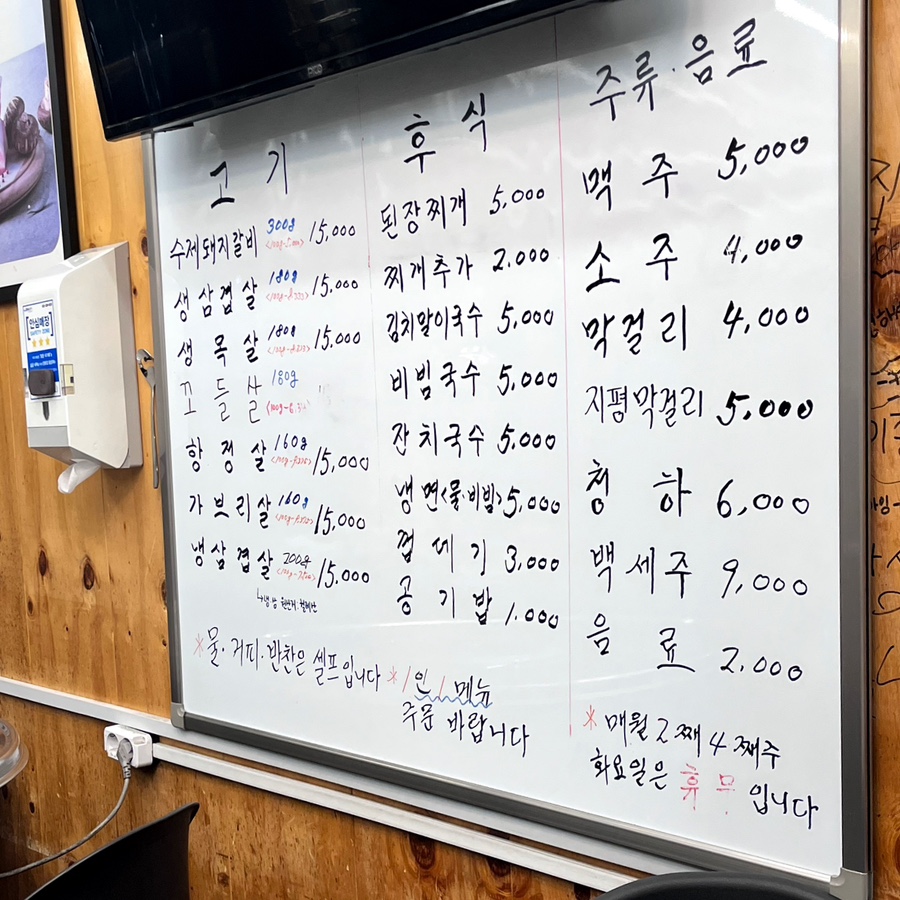 고 기
수제돼지갈비 300g 15,000
생삼겹살 180g 15,000
생목살 180g 15,000
꼬들살 180g
항정살 160g 15,000
가브리살 160g 15,000
냉삼겹살 200g 15,000
*물·커피·반찬은 셀프입니다
후 식
된장찌개 5,000
찌개추가 2.000
김치말이국수 5,000
비빔국수 5,000
잔치국수 5,000
냉면<물·비빔> 5,000
껍데기 3,000
공기밥 1.000
*1인 1 메뉴
주문 바랍니다
주류·음료
맥주 5,000
소주 4,000
막걸리 4,000
지평막걸리 5,000
청하 6,000
백세주 9,000
음료 2,000
*매월 2째 4째주
화요일은 휴무입니다
안심매장